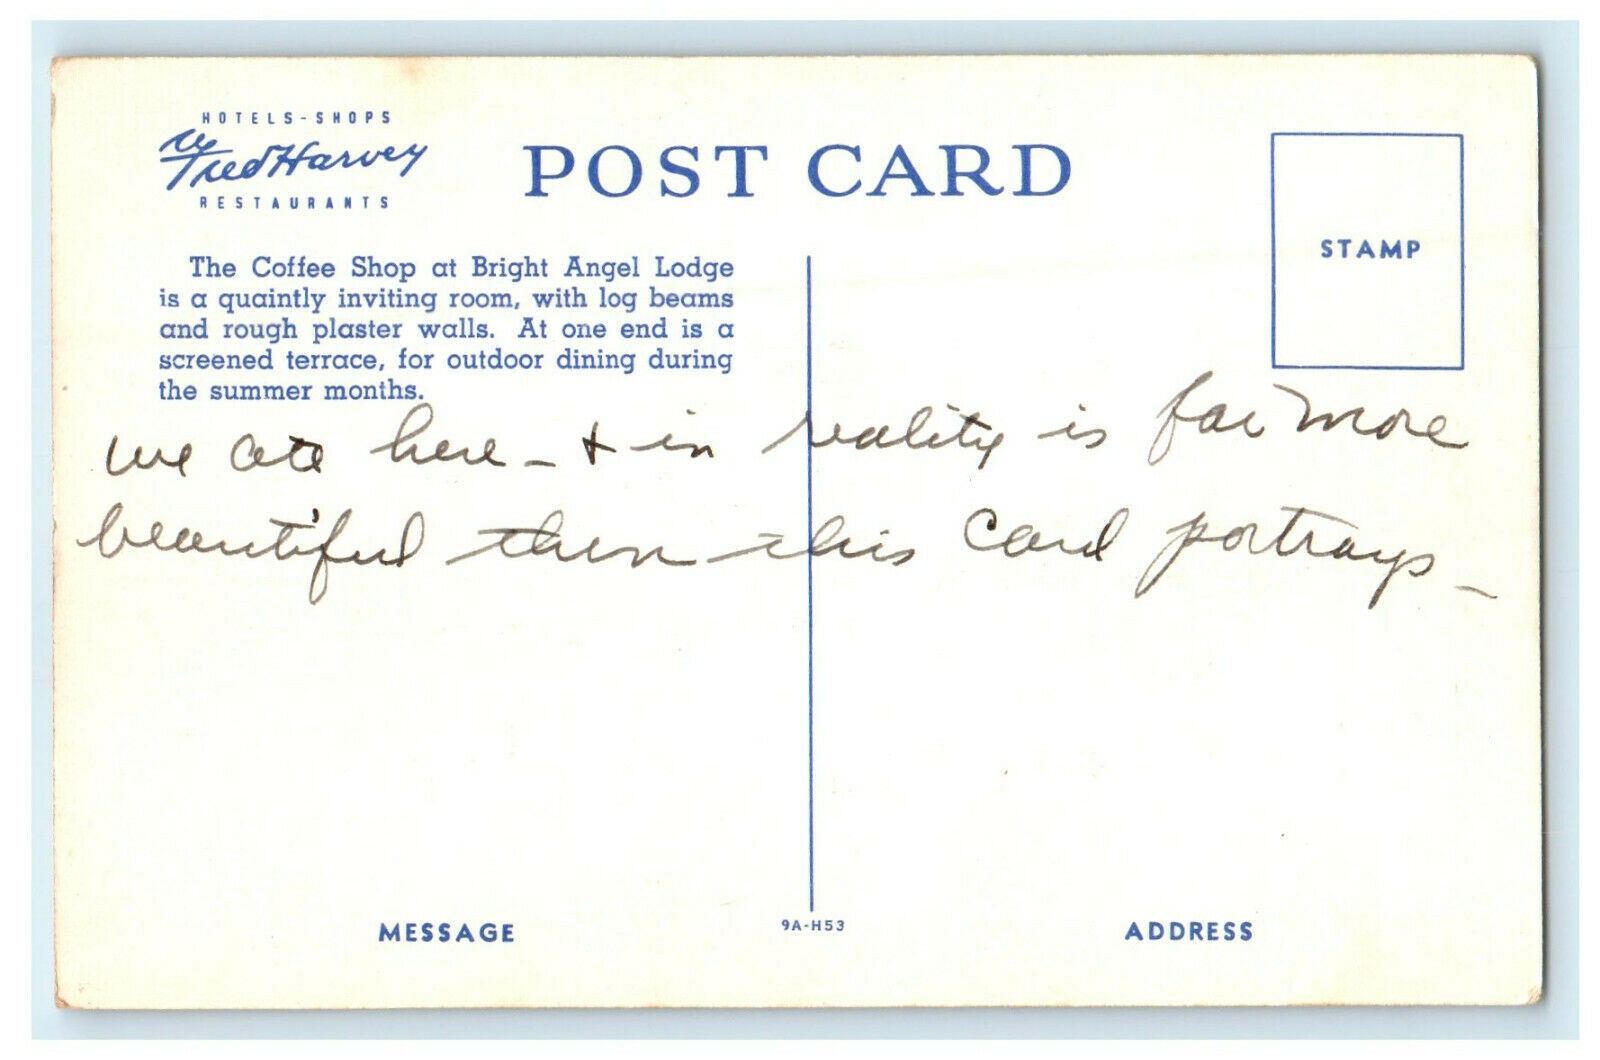 HOTELS-SHOPS
Fred Harvey
RESTAURANTS
POST CARD
STAMP
The Coffee Shop at Bright Angel Lodge
is a quaintly inviting room, with log beams
and rough plaster walls. At one end is a
screened terrace, for outdoor dining during
the summer months.
we ate here - & in reality is far more
beautiful then this card portrays -
MESSAGE
9A-H53
ADDRESS